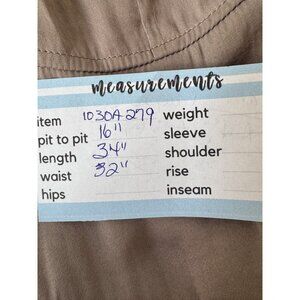 measurements
item 1030A279 weight
pit to pit 16" sleeve
length 34" shoulder
waist 32" rise
hips inseam